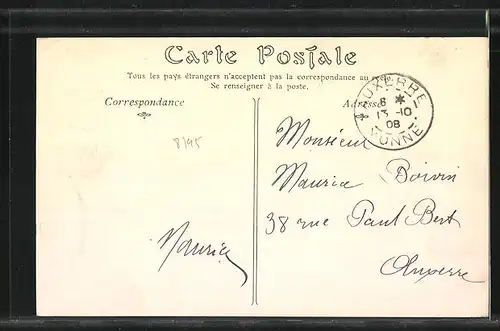 Carte Postale
Tous les pays étrangers n'acceptent pas la correspondance au recto.
Se renseigner à la poste.
Correspondance
Adresse
AUXERRE
6 * 
13-10
08
YONNE
8/95
Monsieur
Maurice Boivin
38 rue Paul Bert
Auxerre
Maurice